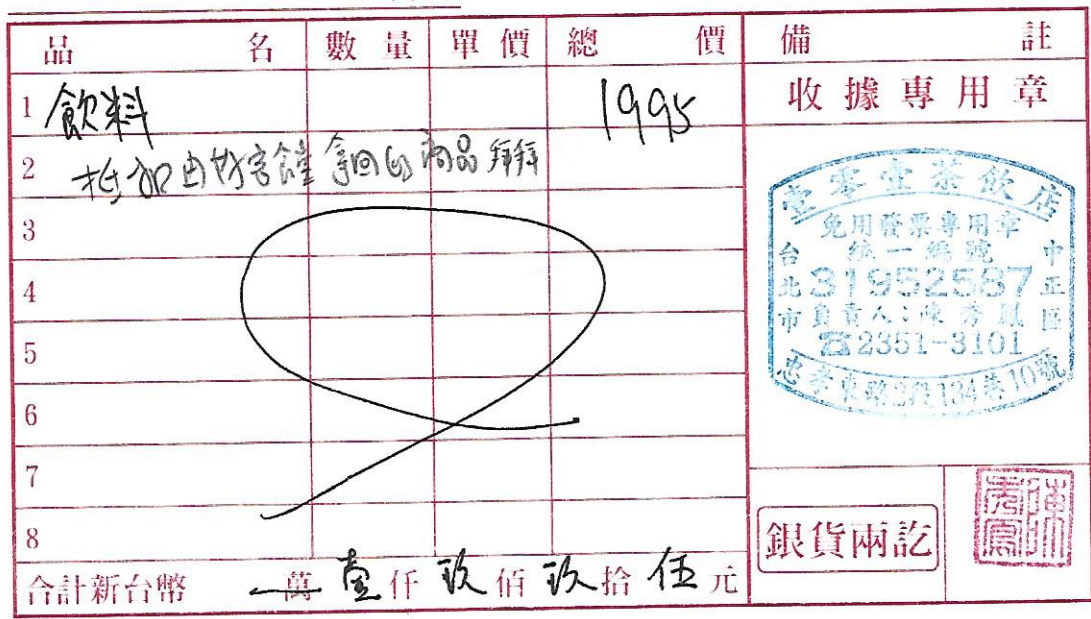 品名 數量 單價 總價 備註
1 飲料 1995 收據專用章
2
3
4
5
6
7
8
合計新台幣 萬 壹仟 玖佰 玖拾 伍元
壹零壹茶飲店
免用發票專用章
統一編號
台北市 中正區
31952587
負責人:陳秀鳳
☎2351-3101
忠孝東路2段134巷10號
銀貨兩訖
陳秀鳳